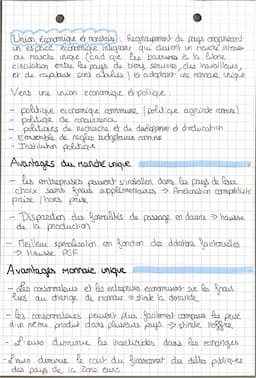 Union économique et monétaire : Regroupement de pays
un espace économique intégrant qui devient un marché
ou marché unique (càd que les barrières à la libre
circulation entre les pays de biens, services, des travailleurs,
et de capitaux sont abolies) et adoptant une monnaie unique
Vers une union économique et politique :
- politique économique commune (politique agricole
- politique de concurrence
- politiques de recherche et de développement et d'éducation
- Ensemble de règles budgétaires communes
- Institution politique
Avantages du marché unique
- Les entreprises peuvent s'installer dans les pays de leur
choix sans frais supplémentaires → Amélioration compétitivité
prix / hors prix
- Disparition des formalités de passage en douane → hausse
de la production
- Meilleur spécialisation en fonction des dotations factorielles
→ Hausse PGF
Avantages monnaie unique
- Les consommateurs et les entreprises économisent sur les frais
liés au change de monnaie → stimule la demande
- Les consommateurs peuvent plus facilement comparer les prix
d'un même produit dans plusieurs pays → stimule l'offre
- L'euro diminue les incertitudes dans les échanges
- L'euro diminue le coût du financement des dettes publiques
des pays de la Zone euro.